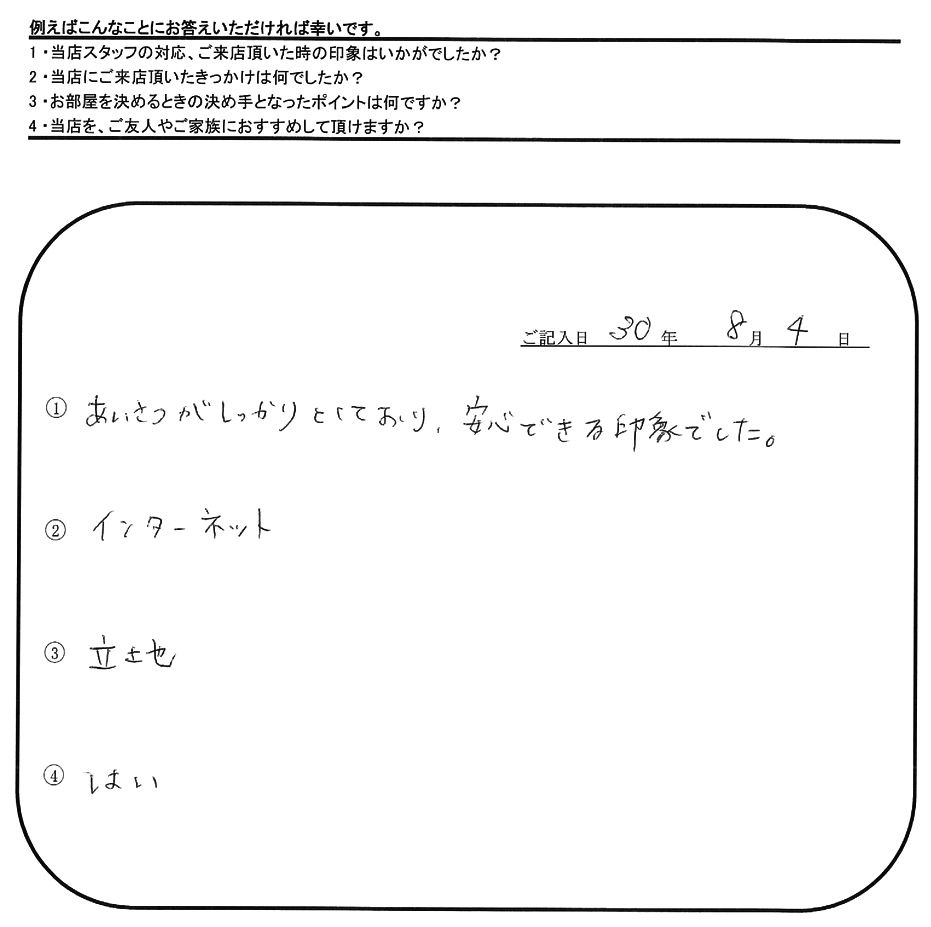 例えばこんなことにお答えいただければ幸いです。
1・当店スタッフの対応、ご来店頂いた時の印象はいかがでしたか？
2・当店にご来店頂いたきっかけは何でしたか？
3・お部屋を決めるときの決め手となったポイントは何ですか？
4・当店を、ご友人やご家族におすすめして頂けますか？
ご記入日 30年 8月 4日
① あいさつがしっかりとしており、安心できる印象でした。
② インターネット
③ 立地
④ はい